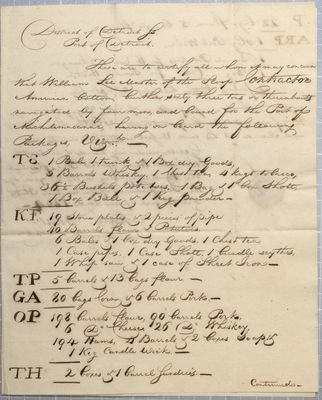 District of Detroit Ss
Port of Detroit.
These are to certify all whom it may concern
that William Lee Master of the Sloop Contractor
American Bottom, burthen sixty three tons or thereabouts
navigated by four men, and bound for the Port of
Michilimackinac, having on board the following
Packages, Viz.
TS 1 Bale 1 trunk & 1 Box dry Goods,
5 Barrels Whiskey, 1 Chest tea, 4 kegs tobacco,
36½ Bushels potatoes, 1 Bag & 1 Box Shott,
1 Box Balls & 1 Keg powder —
KF 19 Stove plates & 2 pieces of pipe
20 Barrels flour & Potatoes
6 Bales & 1 box dry Goods. 1 Chest tea
1 Case pipes. 1 Case Shott, 1 bundle scythes,
1 Whip saw & 1 case of Sheet Iron —
TP 5 Barrels & 13 bags flour —
GA 20 bags Corn & 6 Barrels Pork. —
OP 198 barrels flour, 90 Barrels Pork.
6 (Do) Cheese, 126 (Do) Whiskey,
194 Hams, 4 Barrels & 2 boxes Soap &
1 Keg Candle Wick. —
TH 2 Boxes & 1 barrel Sundries. —
Continued.